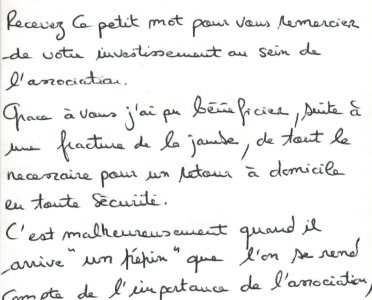 Recevez ce petit mot pour vous remercier
de votre investissement au sein de
l'association.
Grace à vous j'ai pu bénéficier, suite à
une fracture de la jambe, de tout le
necessaire pour un retour à domicile
en toute sécurité.
C'est malheureusement quand il
arrive "un pépin" que l'on se rend
compte de l'importance de l'association,